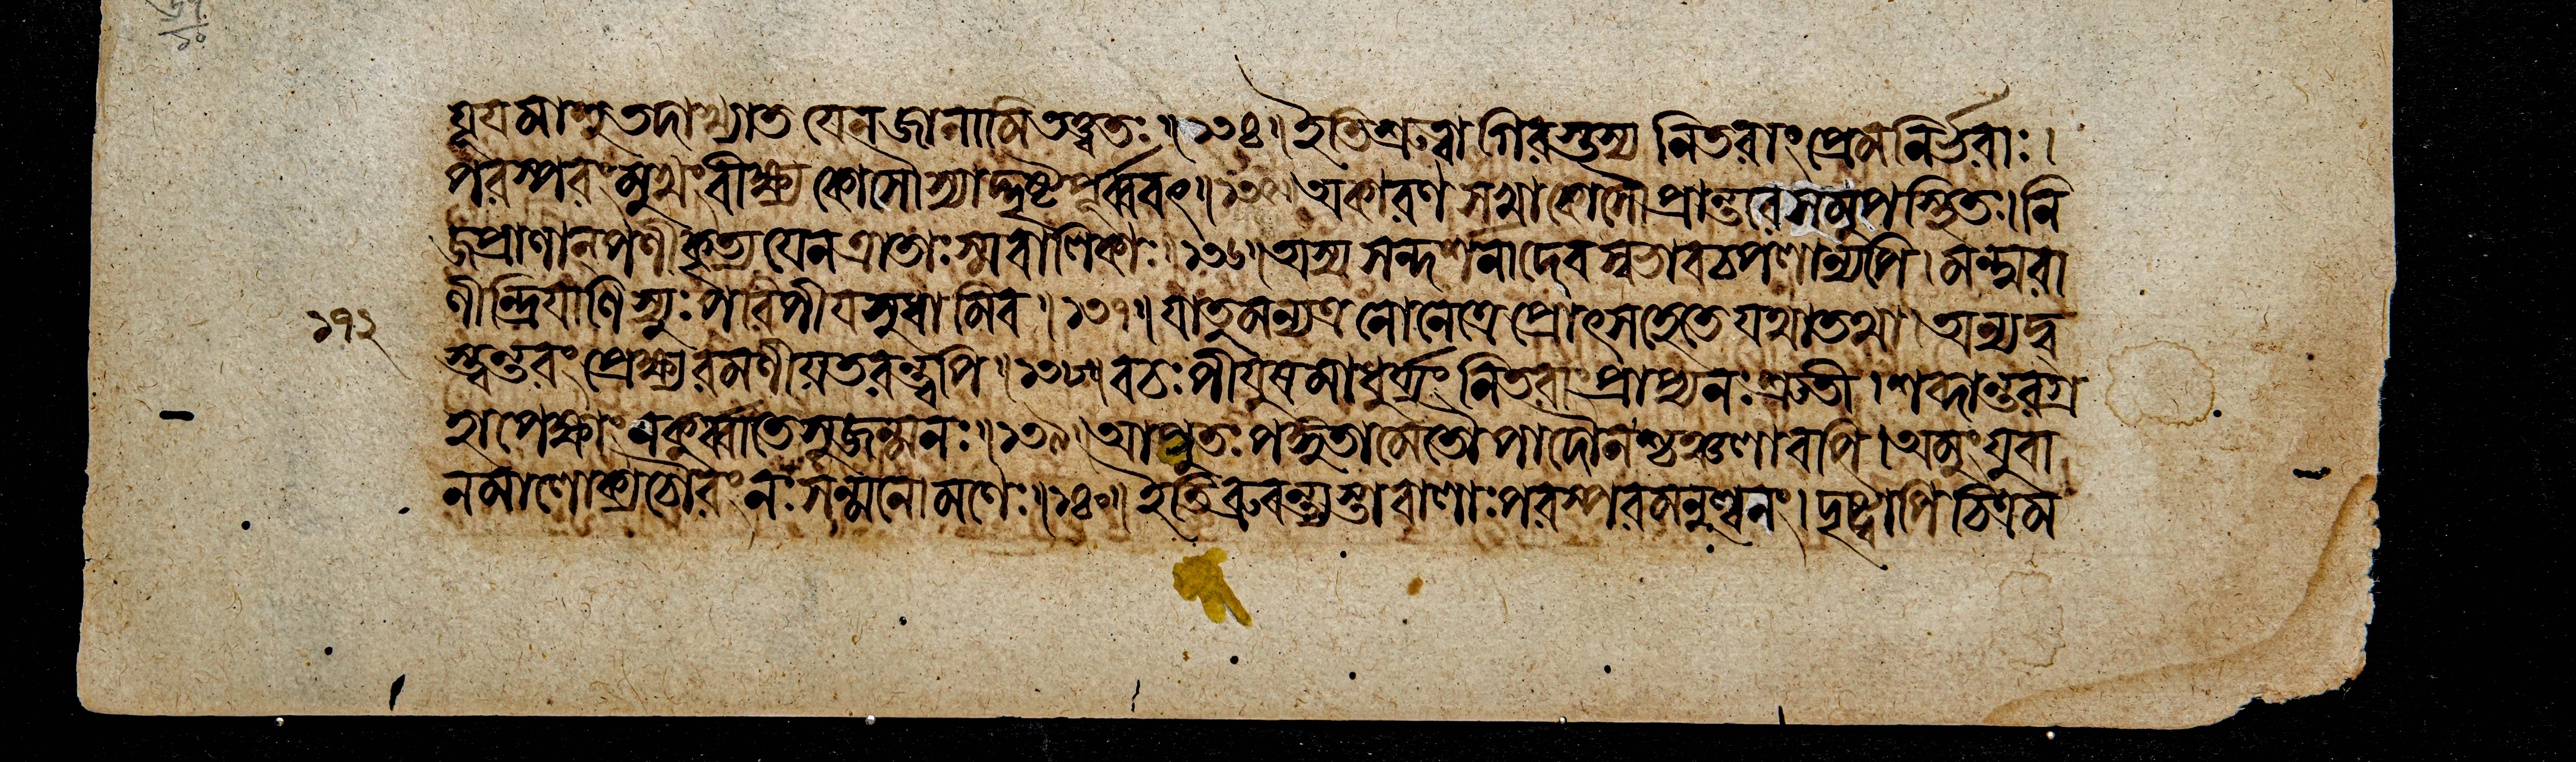 যূযমাশু তদাখ্যাত যেন জানামি তত্ত্বতঃ ॥ ১৩৪ ॥ ইতি শ্রুত্বা গিরস্তস্য নিতরাং প্রেমনির্ভরাঃ ।
পরস্পরং মুখং বীক্ষ্য কোসৌ স্যাদ্দৃষ্টপূর্ব্ববৎ ॥ ১৩৫ ॥ অকারণসখা কোসৌ প্রান্তরে সমুপস্থিতঃ । নি
জপ্রাণান্ পণীকৃত্য যেন ত্রাতাঃ স্ম বালিকাঃ ॥ ১৩৬ ॥ অস্য সন্দর্শনাদেব স্বভাবচপলান্যপি । মন্থরা
১৭২
ণীন্দ্রিযাণি স্যুঃ পরিপীয সুধামিব ॥ ১৩৭ ॥ যাতুমন্যত্র নো নেত্রে প্রোৎসহেতে যথাতথা । অন্যদ্ব
স্ত্বন্তরং প্রেক্ষ্য রমণীয়তরন্ত্বপি ॥ ১৩৮ ॥ বচঃপীযুষমাধুর্য্যং নিতরাং প্রাপ্য নঃ শ্রুতী । শব্দান্তরগ্র
হাপেক্ষাং ন কুর্ব্বাতে সুজন্মনঃ ॥ ১৩৯ ॥ আপ্নুতঃ পঙ্গুতামেতৌ পাদৌ নশ্চঞ্চলাবপি । অমুং যুবা
নমালোক্য চৌরং নঃ সন্মনোমণেঃ ॥ ১৪০ ॥ ইতি ব্রুবন্ত্যস্তা বালাঃ পরস্পরমনুল্বনং । দৃষ্ট্বাপি চিত্রম